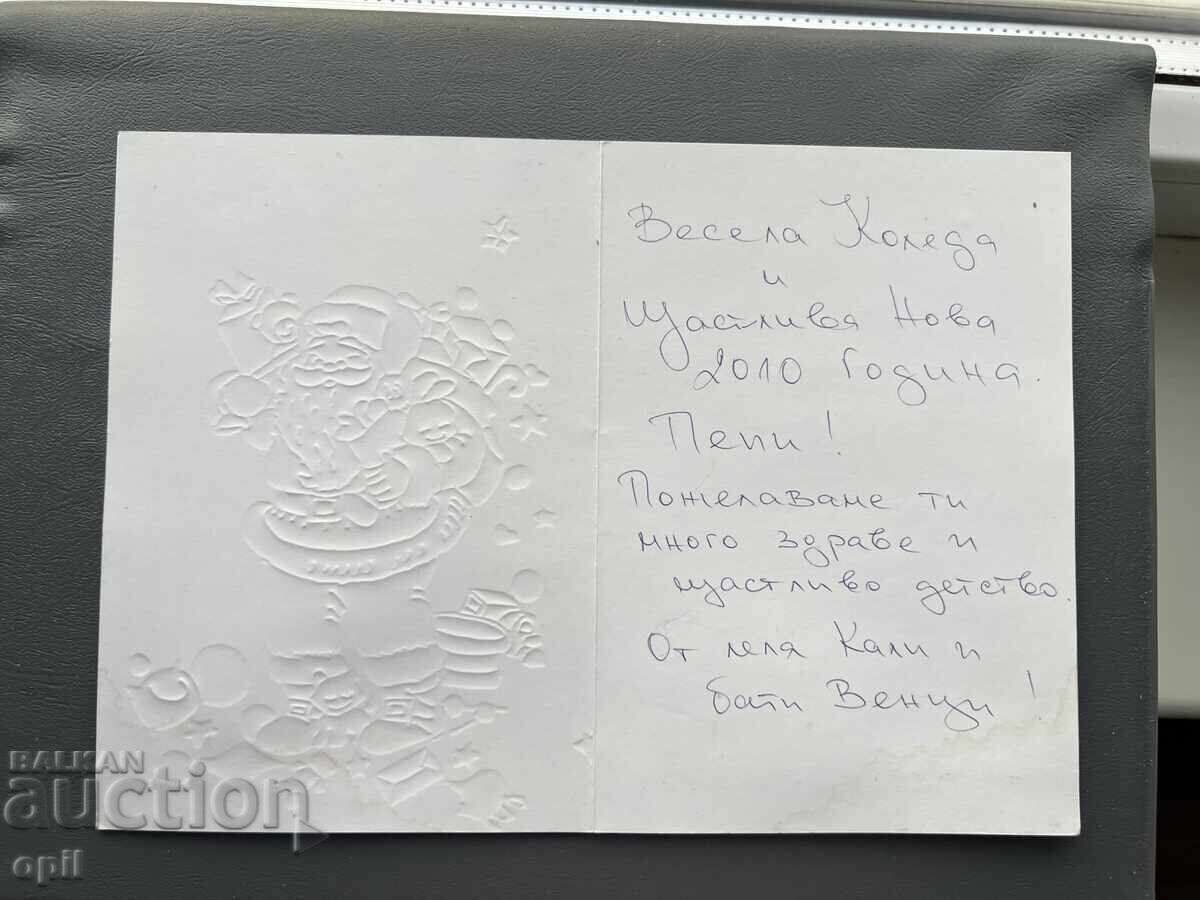 Весела Коледа
и
Щастливая Нова
2010 Година.
Пепи!
Пожелаваме ти
много здраве и
щастливо детство.
От леля Кали и
бати Венци!
BALKAN
auction
opil